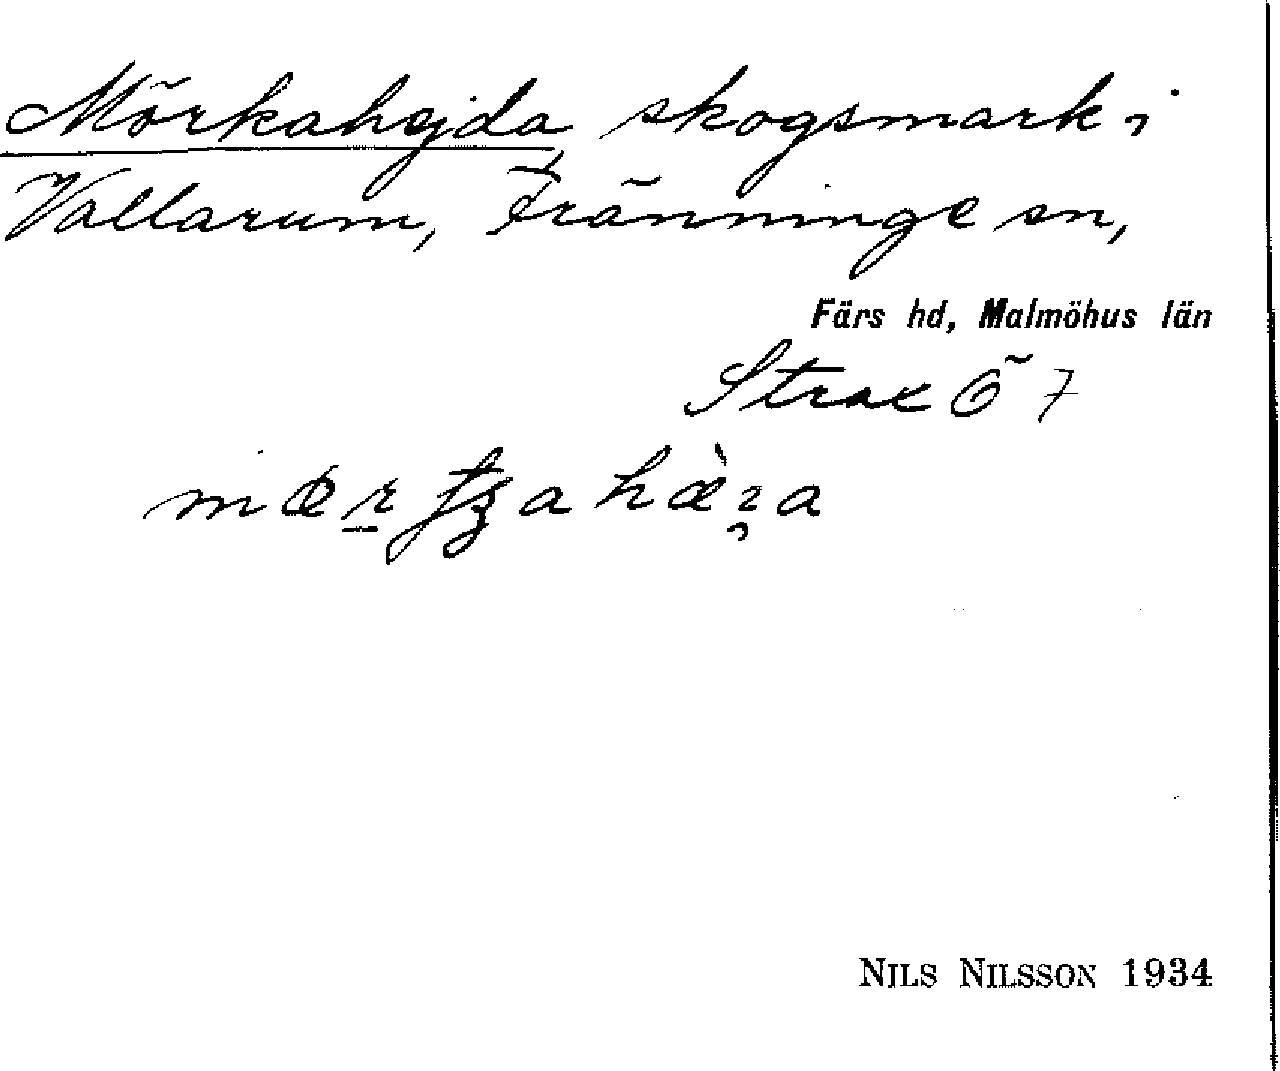 Mörkahejda skogsmark i
Vallarum, Fränninge sn,
Färs hd, Malmöhus län
Strax Ö 7
NILS NILSSON 1934